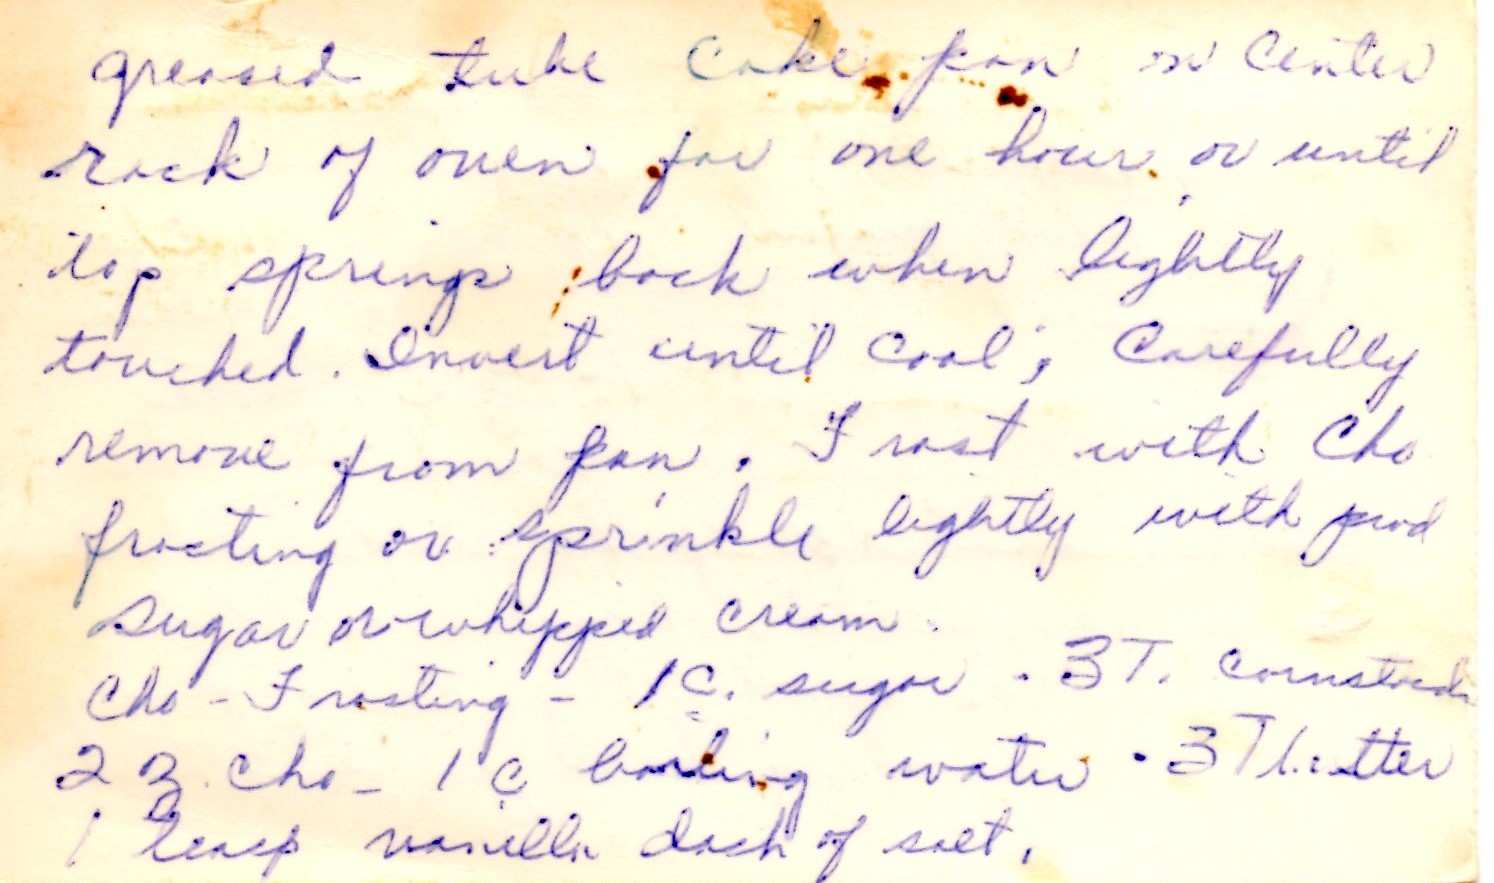 greased tube cake pan on center
rack of oven for one hour or until
top springs back when lightly
touched. Invert until cool; Carefully
remove from pan. Frost with Cho
frosting or sprinkle lightly with pwd
sugar or whipped cream.
Cho - Frosting - 1 C. sugar. 3 T. Cornstarch
2 z. Cho - 1 C boiling water. 3 T butter
1 teasp vanilla dash of salt.